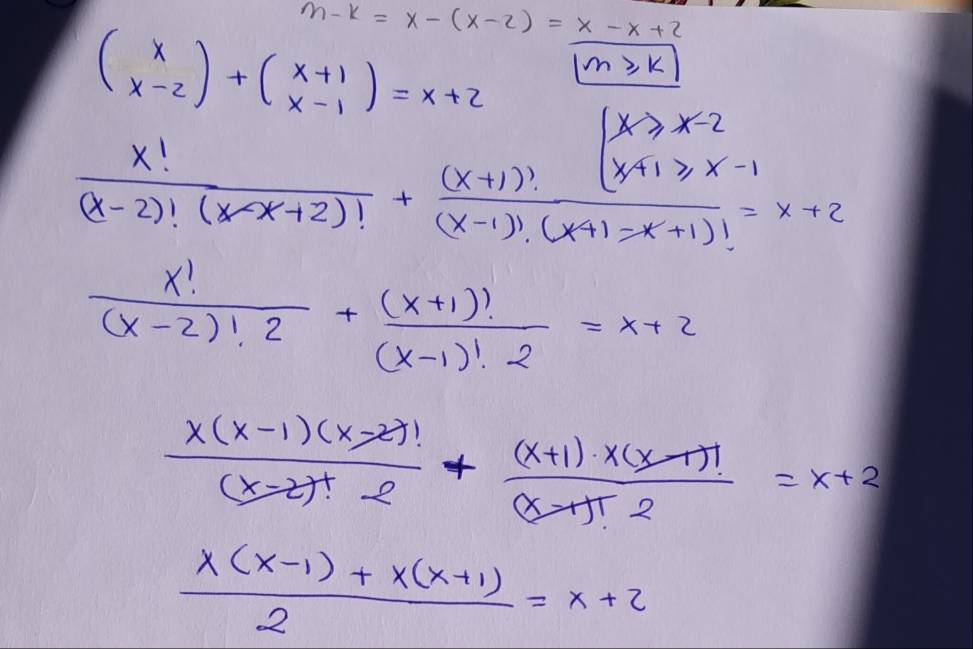 n-k = x-(x-2) = x-x+2
(x x-2) + (x+1 x-1) = x+2
n ≥ k
x ≥ x-2
x+1 ≥ x-1
x! / (x-2)! (x-x+2)! + (x+1)! / (x-1)! · (x+1-x+1)! = x+2
x! / (x-2)! 2 + (x+1)! / (x-1)! 2 = x+2
x(x-1)(x-2)! / (x-2)! 2 + (x+1)·x(x-1)! / (x-1)! 2 = x+2
x(x-1) + x(x+1) / 2 = x+2